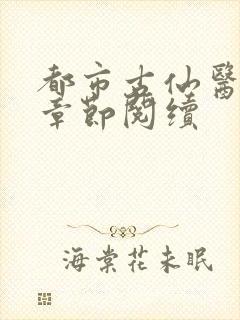 都市古仙醫
章節閱續
海棠花未眠